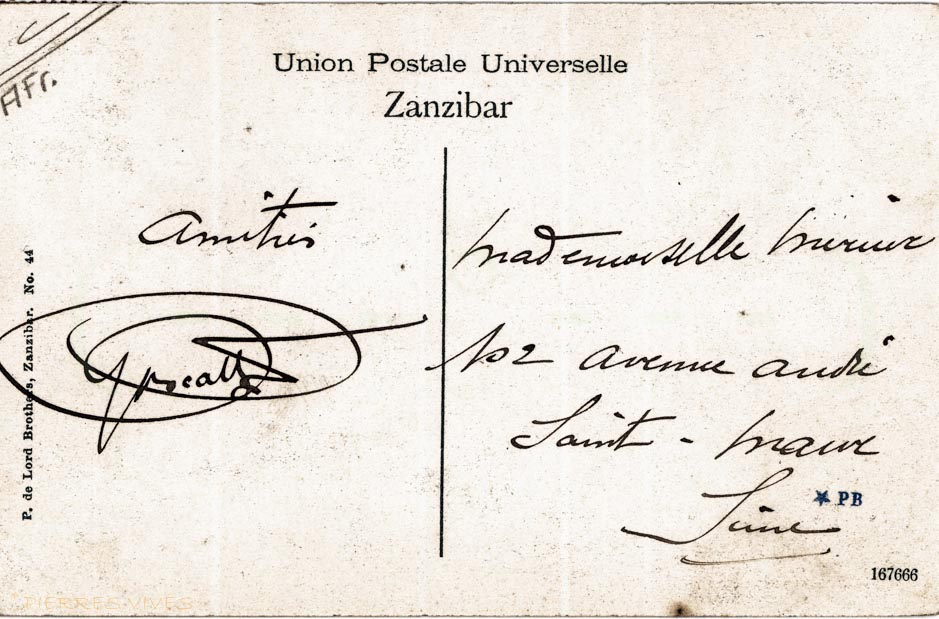 Afr.
Union Postale Universelle
Zanzibar
Amitiés
P. de Lord Brothers, Zanzibar. No. 44
Mademoiselle
102 avenue André
Saint - Maur
Seine
PB
167666
PIERRES VIVES